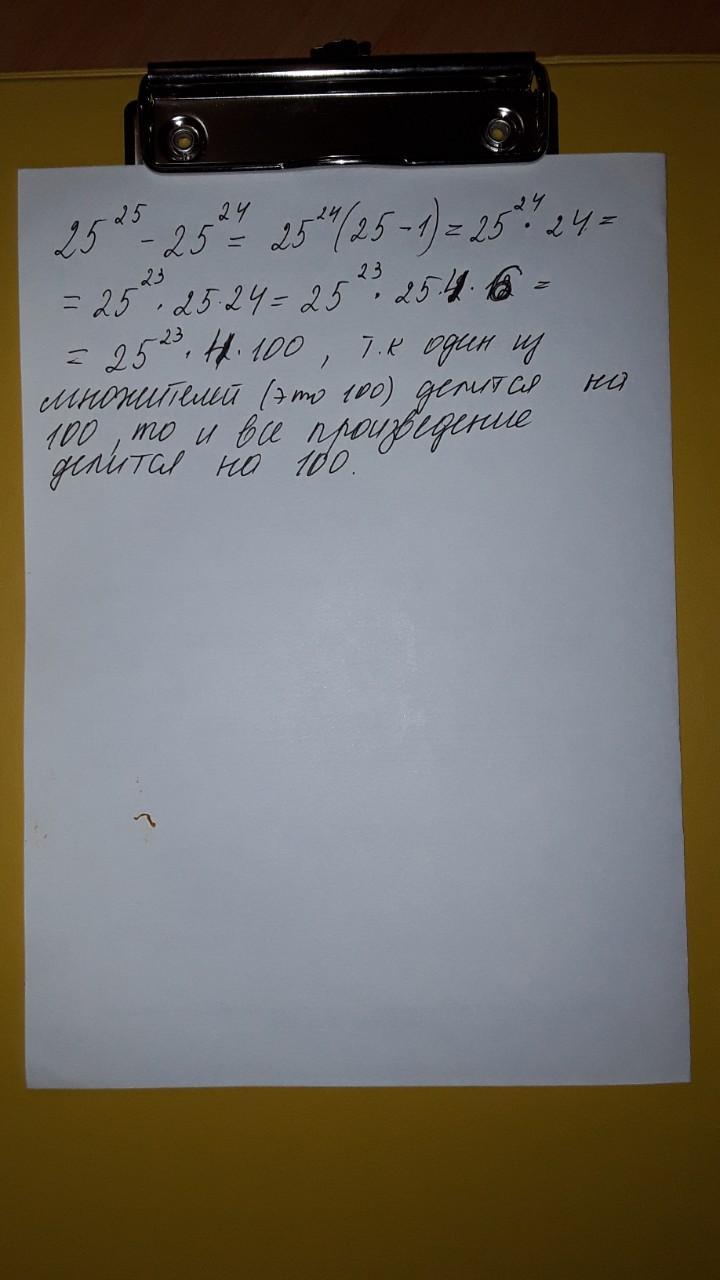 25²⁵ - 25²⁴ = 25²⁴(25-1) = 25²⁴ · 24 =
= 25²³ · 25 · 24 = 25²³ · 25 · 4 · 6 =
= 25²³ · 4 · 100 , т.к один из
множителей (это 100) делится на
100, то и все произведение
делится на 100.